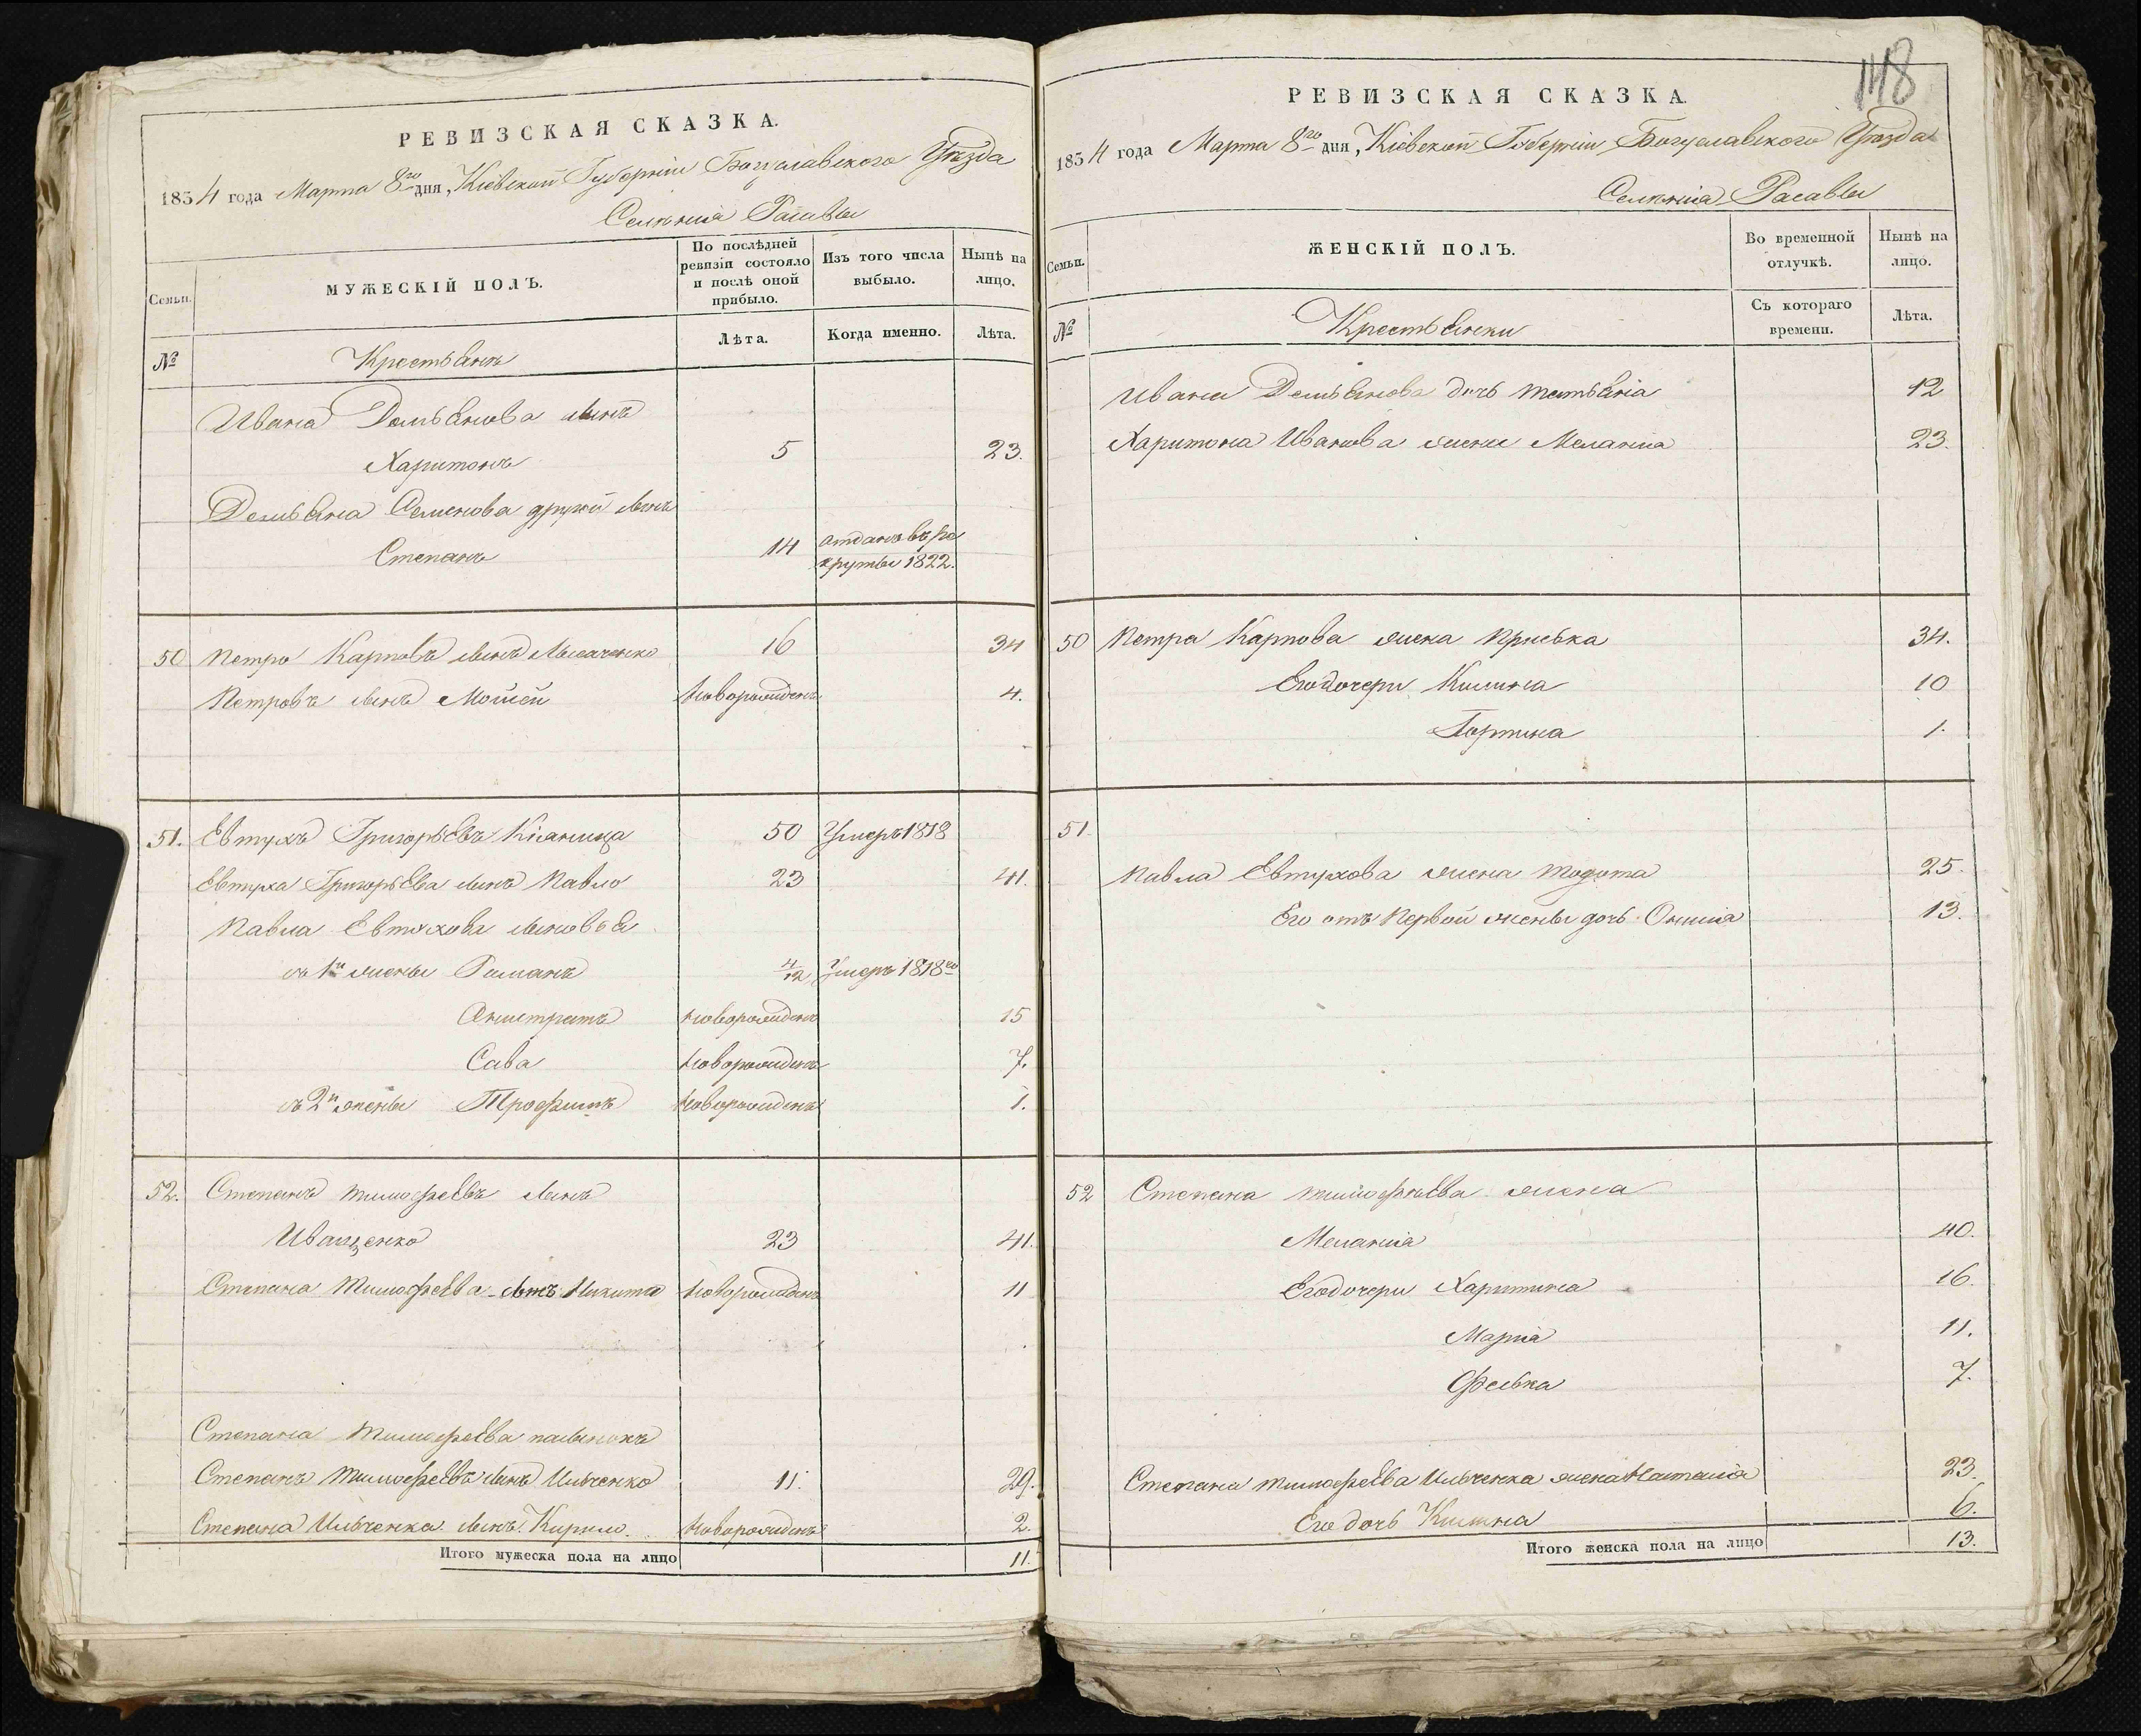 148
РЕВИЗСКАЯ СКАЗКА.
1834 года Марта 8го дня, Кіевской Губерніи Богуславского Уѣзда
Селенія Расавы
Семьи.
МУЖЕСКІЙ ПОЛЪ.
По послѣдней ревизіи состояло и послѣ оной прибыло.
Изъ того числа выбыло.
Нынѣ на лицо.
№
Крестьянъ
Лѣта.
Когда именно.
Лѣта.
Ивана Демьянова сынъ
Харитонъ 5 23.
Демьяна Семенова другій сынъ
Степанъ 14 отданъ въ ре
круты 1822.
50 Петро Карповъ сынъ 16 34
Петровъ сынъ Мойсей новорожденъ 4.
51. Евтухъ Григорьевъ Кіяница 50 Умеръ 1818
Евтуха Григорьева сынъ Павло 23 41.
Павла Евтухова сыновья
съ 1й жены Романъ 4/12 Умеръ 1818го
Анистратъ новорожденъ 15
Сава новорожденъ 7.
съ 2й жены Трофимъ новорожденъ 1.
52. Степанъ Тимофеевъ сынъ
Иващенко 23 41.
Степана Тимофеева сынъ Никита новорожденъ 11
Степана Тимофеева пасынокъ
Степанъ Тимофеевъ сынъ Ильченко 11. 29.
Степана Ильченка сынъ Кирило новорожденъ 2.
Итого мужеска пола на лицо 11.
РЕВИЗСКАЯ СКАЗКА.
1834 года Марта 8го дня, Кіевской Губерніи Богуславского Уѣзда
Селенія Расавы
Семьи.
ЖЕНСКІЙ ПОЛЪ.
Во временной отлучкѣ.
Нынѣ на лицо.
№
Крестьянки
Съ котораго времени.
Лѣта.
Ивана Демьянова дочь Татьянія 12
Харитона Иванова жена Меланія 23.
50 Петра Карпова жена Приська 34.
Его дочери Килина 10
Горпина 1.
51.
Павла Евтухова жена Тодота 25.
Его отъ Первой жены дочь Онисія 13.
52 Степана Тимофеева жена
Меланія 40.
Его дочери Харитина 16.
Марія 11.
Феська 7.
Степана Тимофеева Ильченка жена Наталія 23.
Его дочь Килина 6.
Итого женска пола на лицо 13.